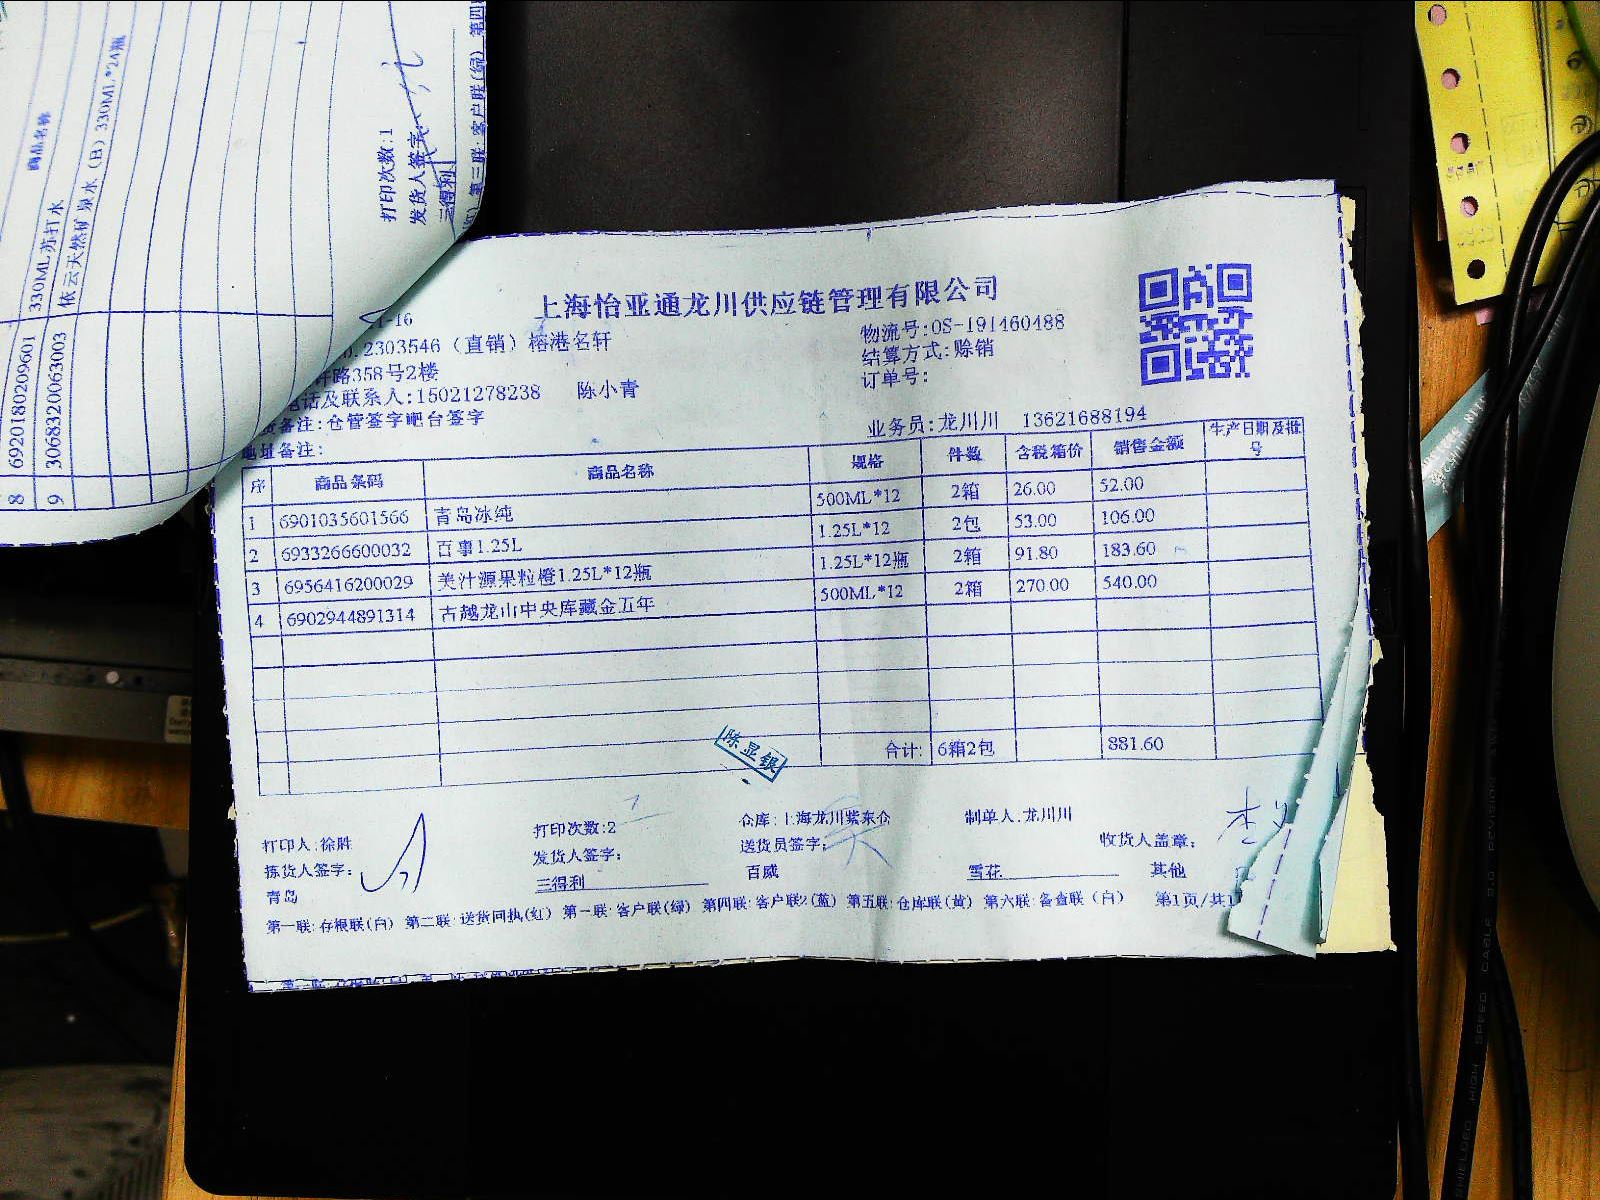 商品名称
8 6920180209601 330ML苏打水
9 3068320063003 依云天然矿泉水（日）330ML*24瓶
打印次数:1
发货人签字
三得利
第三联:客户联(绿) 第四
上海怡亚通龙川供应链管理有限公司
-16
2303546（直销）榕港名轩
路358号2楼
话及联系人:15021278238 陈小青
备注:仓管签字吧台签字
地址备注:
物流号:OS-191460488
结算方式:赊销
订单号:
业务员:龙川川 13621688194
序 商品条码 商品名称 规格 件数 含税箱价 销售金额 生产日期及批号
1 6901035601566 青岛冰纯 500ML*12 2箱 26.00 52.00
2 6933266600032 百事1.25L 1.25L*12 2包 53.00 106.00
3 6956416200029 美汁源果粒橙1.25L*12瓶 1.25L*12瓶 2箱 91.80 183.60
4 6902944891314 古越龙山中央库藏金五年 500ML*12 2箱 270.00 540.00
合计: 6箱2包 881.60
陈显银
打印人:徐胜 打印次数:2 仓库:上海龙川紫东仓 制单人:龙川川
拣货人签字: 发货人签字: 送货员签字: 收货人盖章:
青岛 三得利 百威 雪花 其他
第一联:存根联(白) 第二联:送货回执(红) 第一联:客户联(绿) 第四联:客户联2(蓝) 第五联:仓库联(黄) 第六联:备查联(白) 第1页/共